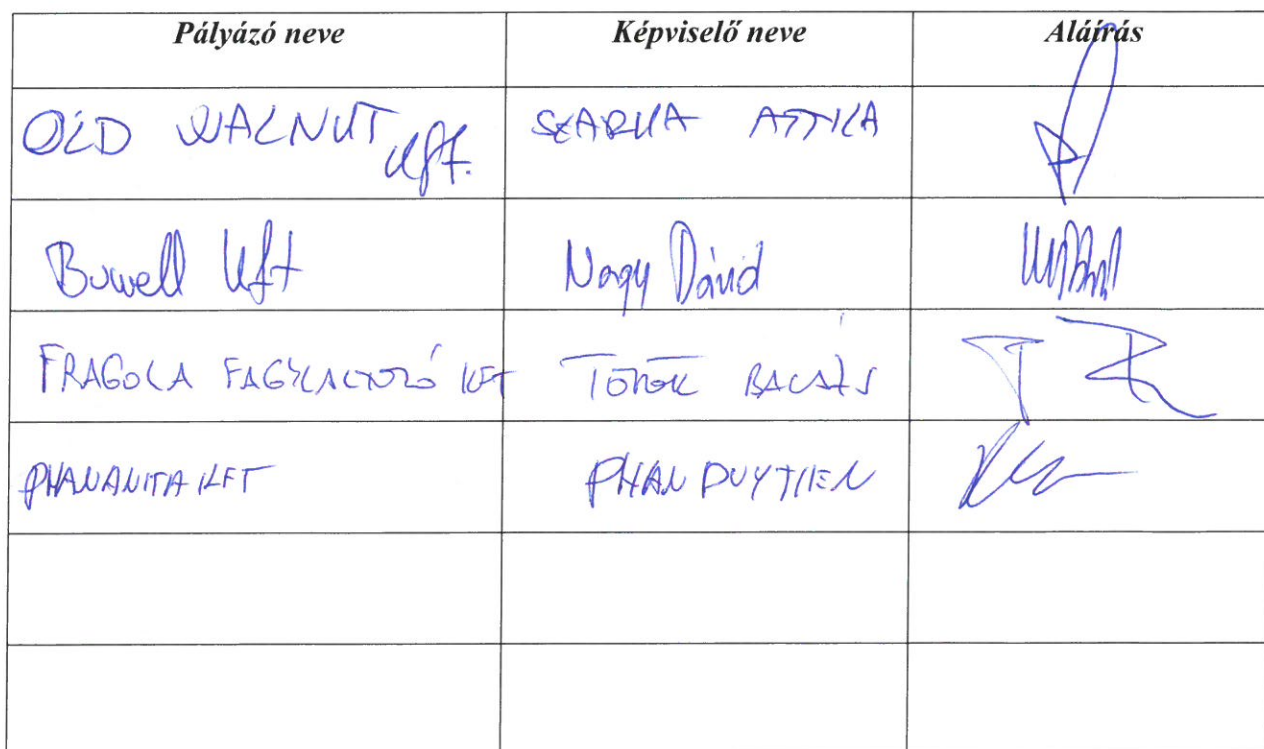 Pályázó neve Képviselő neve Aláírás
OLD WALNUT Kft. SZARKA ATTILA
Buwell Kft Nagy Dávid
FRAGOLA FAGYLALTOZÓ KFT TÖRÖK BALÁZS
PHANANITA KFT PHAN DUY TIEN